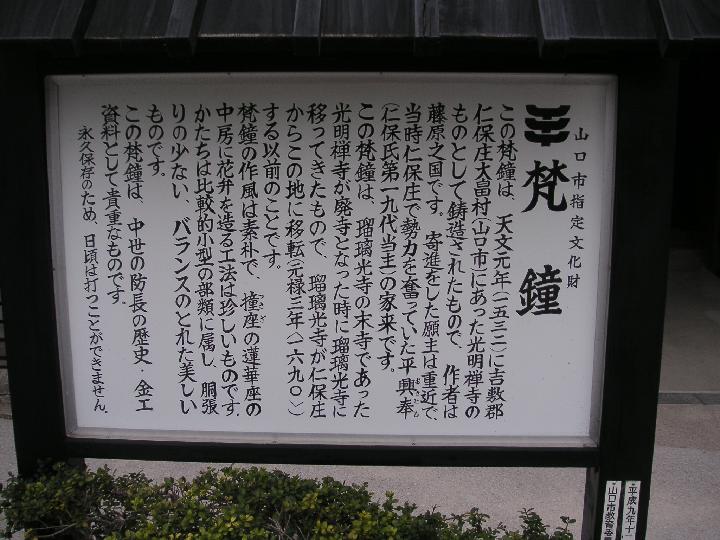 山口市指定文化財
梵鐘
この梵鐘は、天文元年(一五三二)に吉敷郡
仁保庄大畠村(山口市)にあった光明禅寺の
ものとして鋳造されたもので、作者は
藤原之国です。寄進をした願主は重近で、
当時仁保庄で勢力を奮っていた平興奉
(仁保氏第一九代当主)の家来です。
この梵鐘は、瑠璃光寺の末寺であった
光明禅寺が廃寺となった時に瑠璃光寺に
移ってきたもので、瑠璃光寺が仁保庄
からこの地に移転(元禄三年(一六九〇)
する以前のことです。
梵鐘の作風は素朴で、撞座の蓮華座の
中房に花弁を造る工法は珍しいものです。
かたちは比較的小型の部類に属し、胴張
りの少ない、バランスのとれた美しい
ものです。
この梵鐘は、中世の防長の歴史・金工
資料として貴重なものです。
永久保存のため、日頃は打つことができません。
平成九年十
山口市教育委